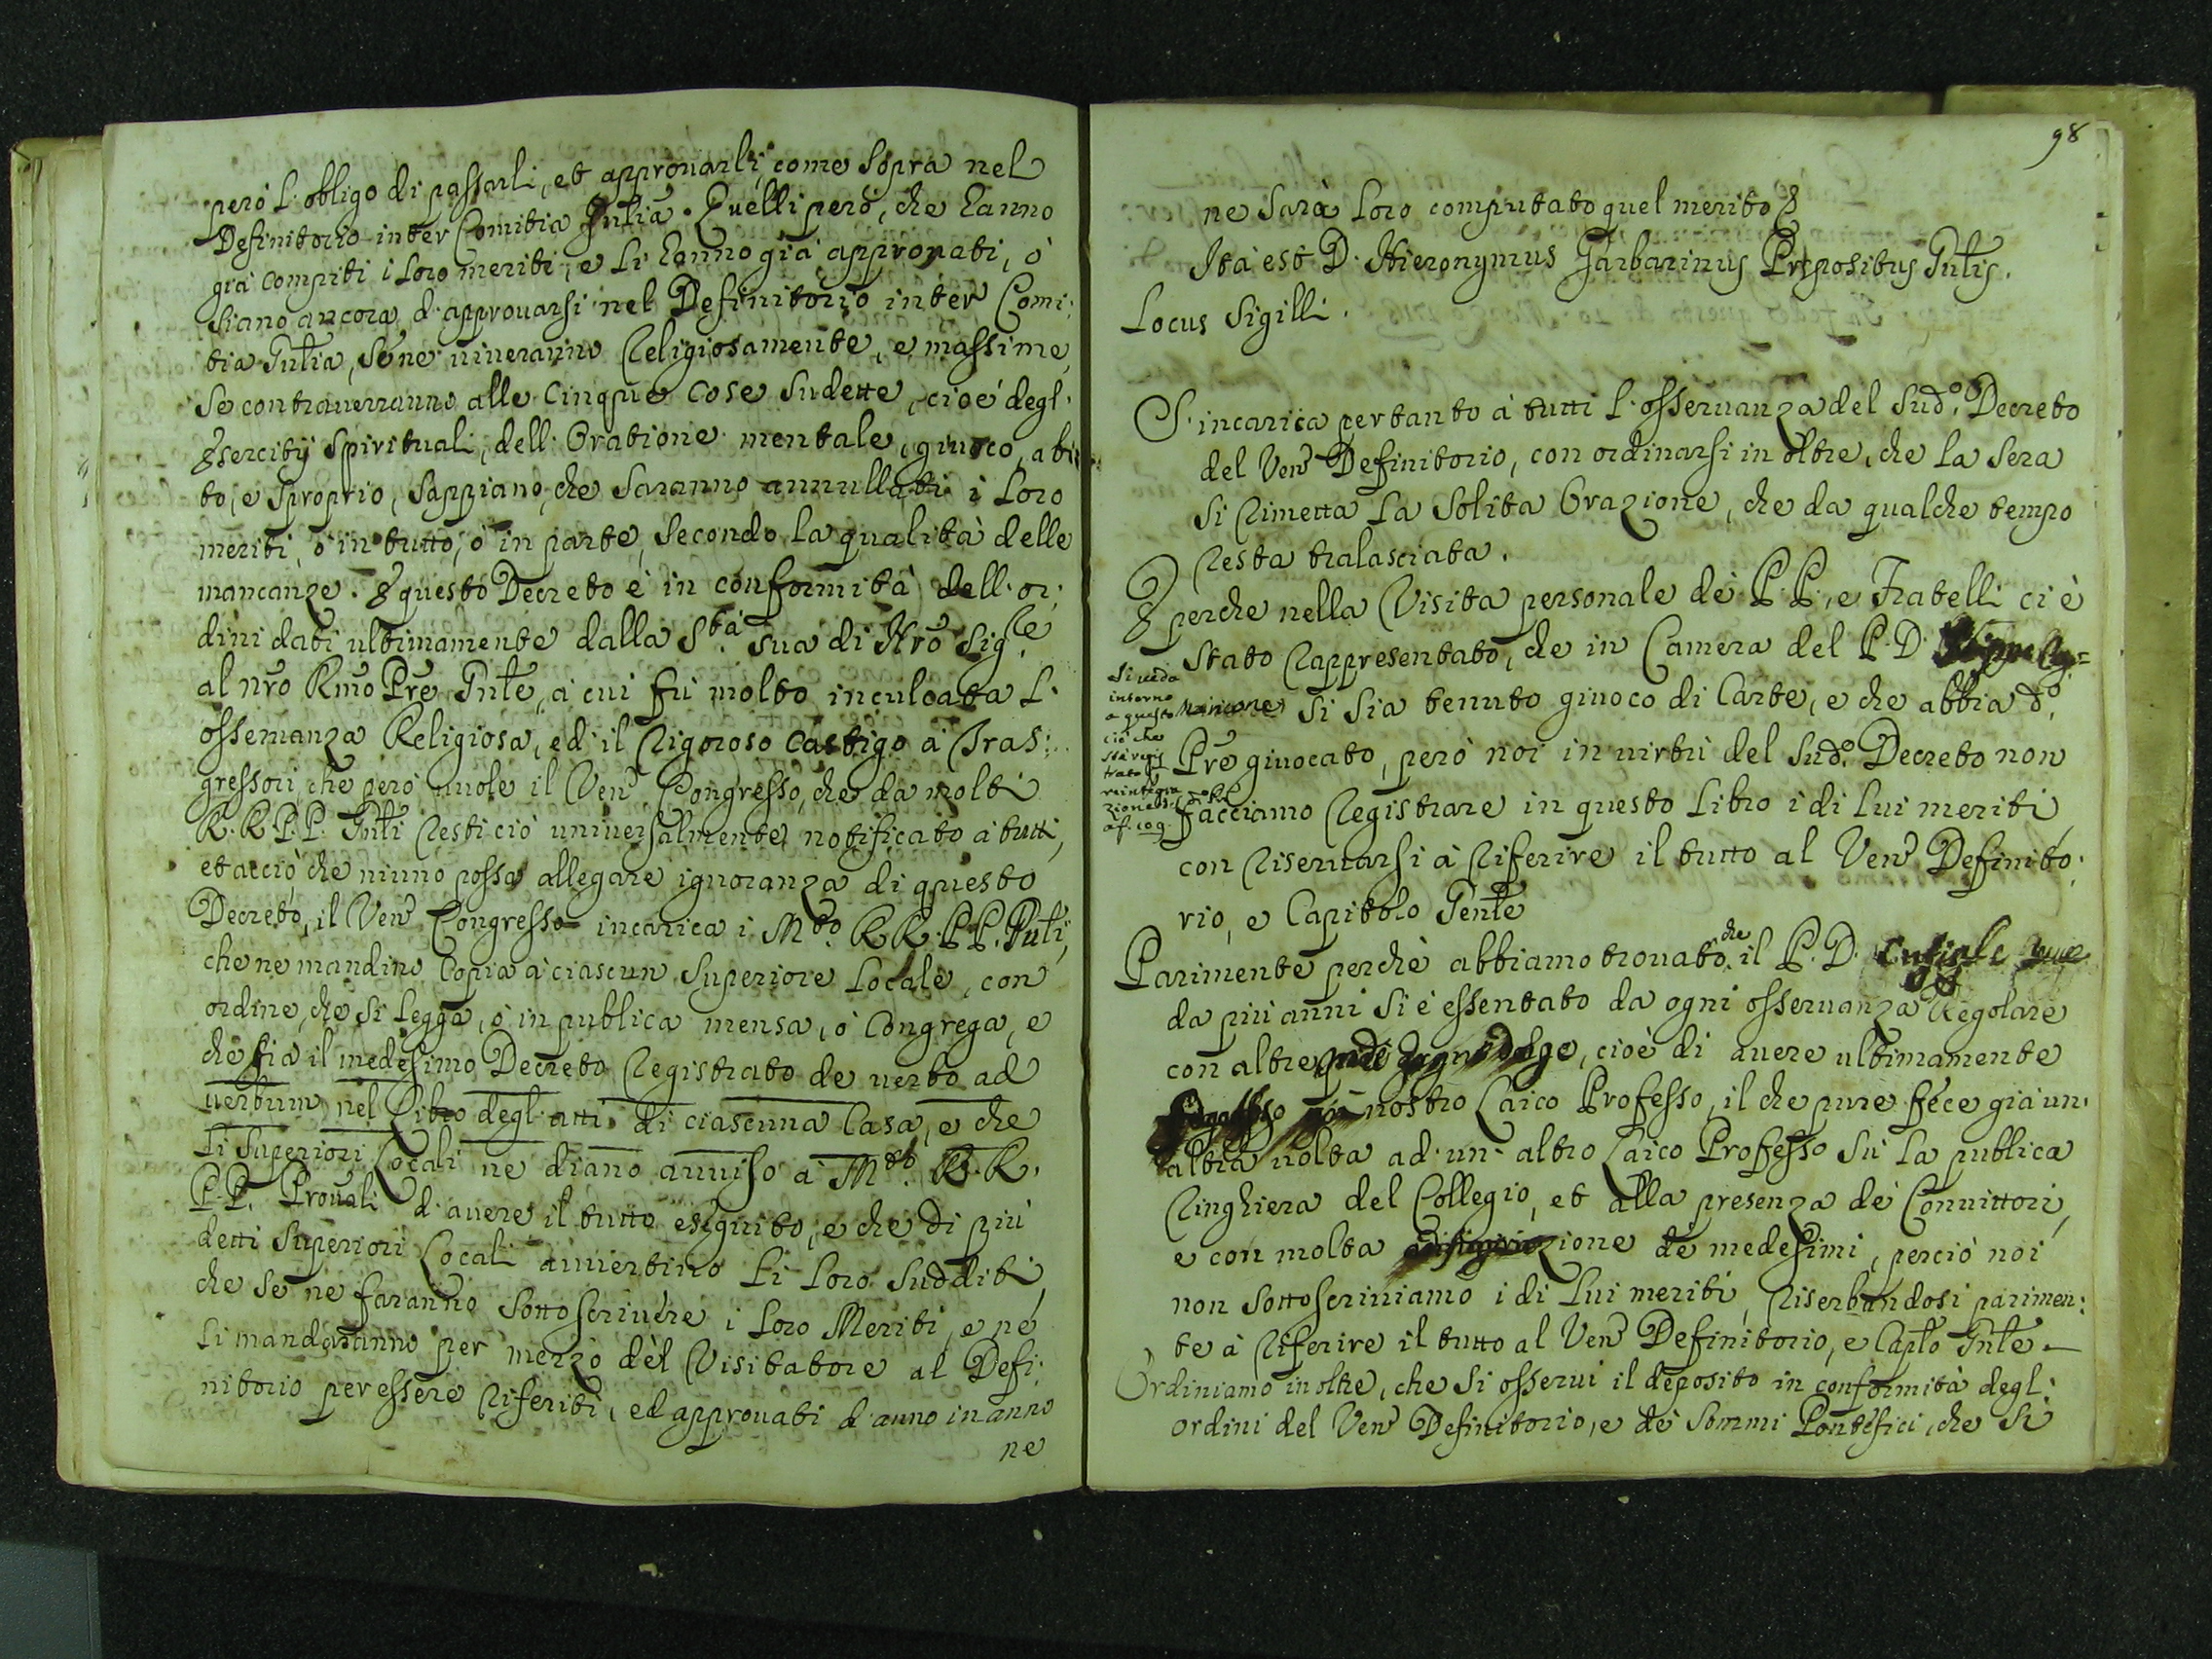 però l'obligo di passarli, et approuarli, come sopra nel
Definitorio inter Comitia Gñtia. Quelli però, che hanno
già compiti i loro meriti, e li hanno già approvati, ò
siano ancora d'approuarsi nel Definitorio inter Comi:
tia Gñtia, se ne uiueranno religiosamente, e massime
se contrauerranno alle cinque cose sudette, cioè degl'
Esercitij Spirituali, dell'Oratione mentale, giuoco, abi
to, e sproprio, sappiano, che saranno annullati i loro
meriti, ò in tutto, ò in parte, secondo la qualità delle
mancanze. E questo Decreto è in conformità dell'or:
dini dati ultimamente dalla S.tà sua di Nrõ Sig.re
al nrõ Rmõ Prẽ Gñle, à cui fu molto inculcata l'
osseruanza Religiosa, ed il rigoroso castigo à Tras:
gressori, che però uuole il Ven. Congresso, che da molti
R.R.P.P. Gñli resti ciò uniuersalmente notificato à tutti,
et acciò, che niuno possa allegare ignoranza di questo
Decreto, il Ven. Congresso incarica i M.to RR.PP.
che ne mandino Copia à ciascun Superiore Locale, con
ordine, che si legga, ò in publica mensa, ò Congrega, e
che sia il medesimo Decreto registrato de uerbo ad
uerbum nel Libro degl'atti di ciascuna Casa, e che
li Superiori Locali ne diano auuiso à M.to R.R.
P.P. Prouali d'auere il tutto eseguito, e che di più
detti Superiori Locali auuertino li loro sudditi,
che se ne faranno sottoscriuere i loro Meriti, e ne
li mandaranno per mezzo del Visitatore al Defi:
nitorio per essere riferiti, ed approuati d'anno in anno
ne
98
ne sarà loro computato quel merito &
Ita est D. Hieronymus Garbarinus Prepositus Gñlis.
Locus Sigilli.
S'incarica pertanto à tutti l'osseruanza del sud.o Decreto
del Ven. Definitorio, con ordinarsi in oltre, che la sera
si rimetta la solita Orazione, che da qualche tempo
resta tralasciata.
E perche nella Visita personale de' P.P., e Fratelli ci è
stato rappresentato, che in Camera del P.D.
si sia tenuto giuoco di Carte, e che abbia d.o
Prẽ giuocato, però noi in uirtù del sud.o Decreto non
facciamo registrare in questo libro i di lui meriti,
con riseruarsi à riferire il tutto al Ven. Definito:
rio, e Capitolo Genle
Si ueda
intorno
a questo
ciò che
stà regis
trato
reintegra
zione
af. 109.
Parimente perchè abbiamo trouato, che il P.D.
da più anni si è essentato da ogni osseruanza Regolare
con altre, cioè di auere ultimamente
nostro Laico Professo, il che pure fece già un'
altra uolta ad un altro Laico Professo sù la publica
ringhiera del Collegio, et alla presenza de' Conuittori,
e con molta de' medesimi, perciò noi
non sottoscriuiamo i di lui meriti, riserbandosi parimen:
te à riferire il tutto al Ven. Definitorio, e Caplo Gñle.
Ordiniamo in oltre, che si osserui il deposito in conformità degl'
ordini del Ven. Definitorio, e de' Sommi Pontefici, che si